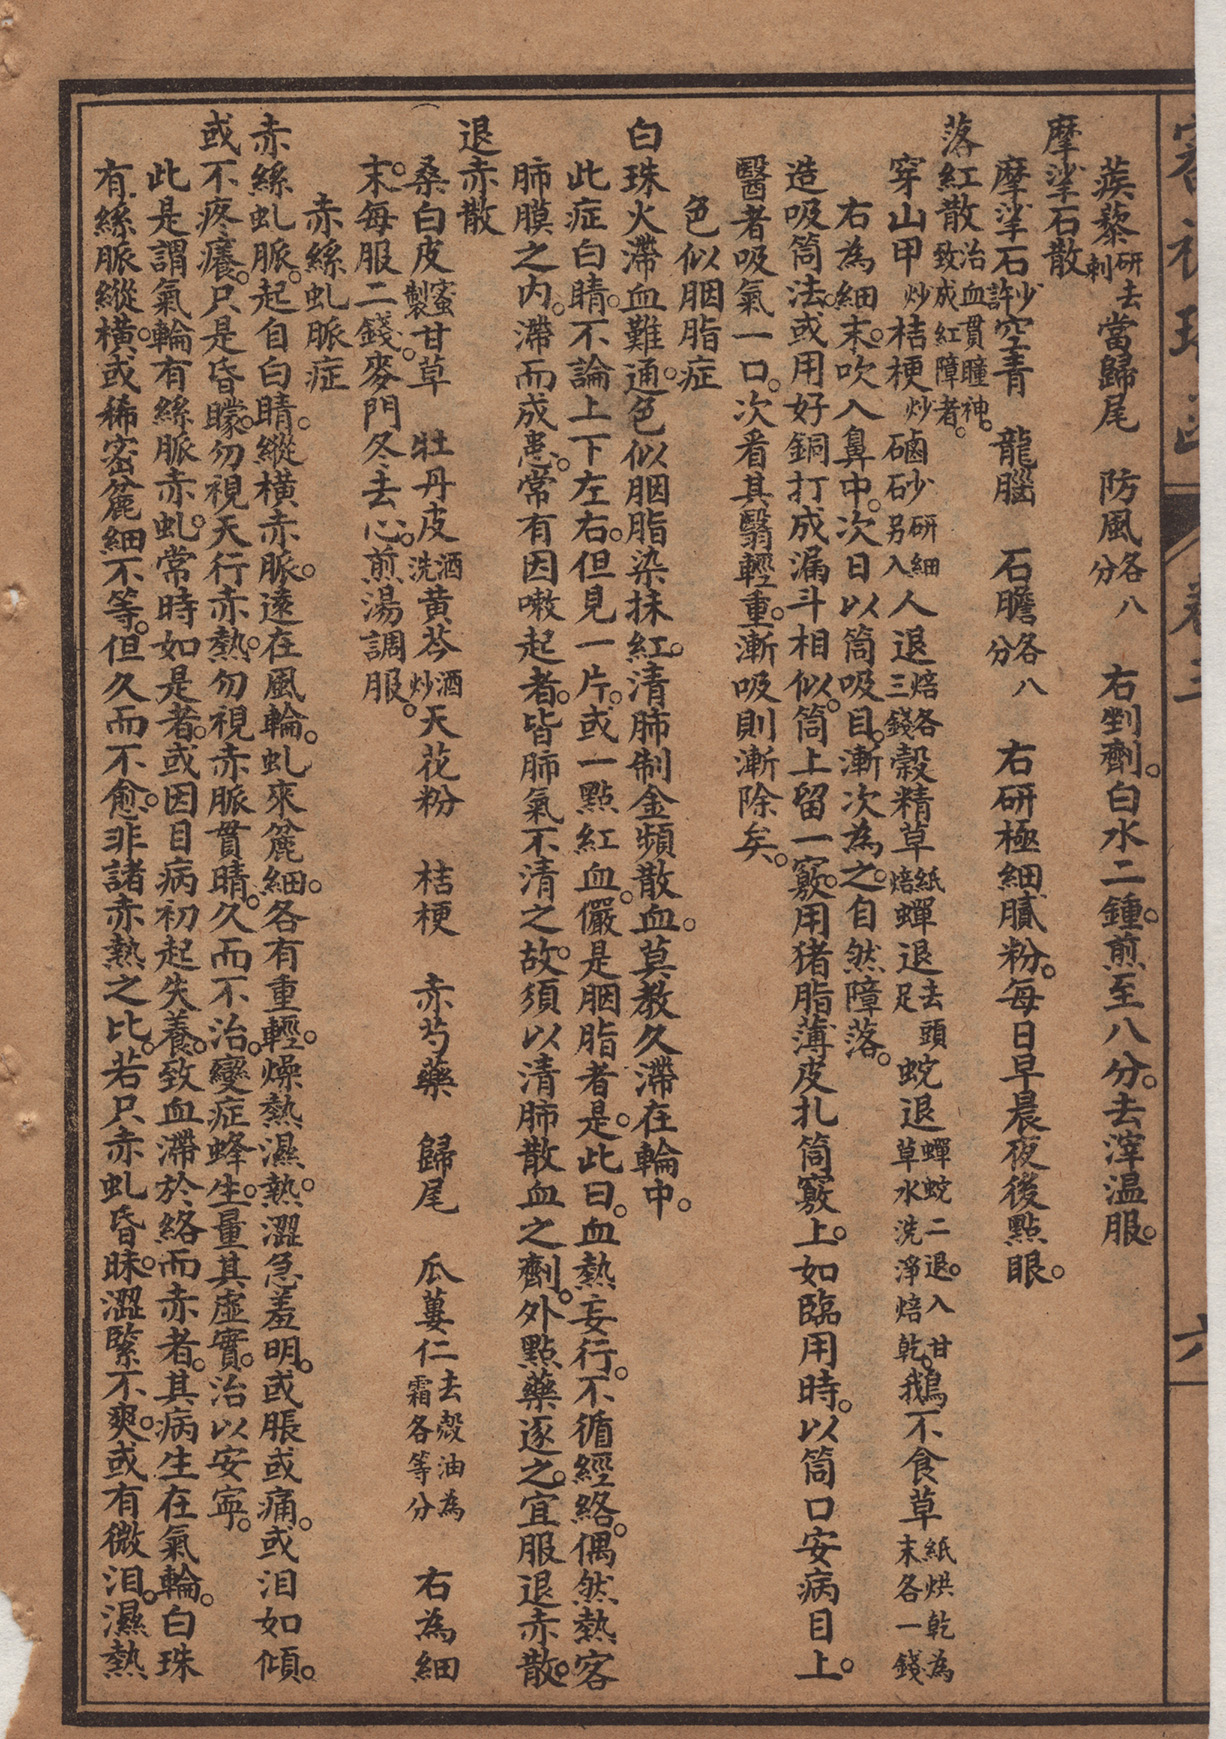 蒺藜研去刺 當歸尾 防風各八分 右剉劑。白水二鍾。煎至八分。去滓温服。
摩挲石散
摩挲石少許 空青 龍腦 石膽各八分 右研極細膩粉。每日早晨夜後點眼。
落紅散治血貫瞳神。致成紅障者。
穿山甲炒 桔梗炒 硇砂研細另入 人退焙各三錢 穀精草紙焙 蟬退去頭足 蛻退蟬蛻二退。入甘草水洗淨焙乾。 鵝不食草紙烘乾為末各一錢
右為細末。吹入鼻中。次日以筒吸目。漸次為之。自然障落。
造吸筒法。或用好銅打成漏斗相似。筒上留一竅。用猪脂薄皮扎筒竅上。如臨用時。以筒口安病目上。
醫者吸氣一口。次看其翳輕重。漸吸則漸除矣。
色似胭脂症
白珠火滯血難通。色似胭脂染抹紅。清肺制金頻散血。莫教久滯在輪中。
此症白睛。不論上下左右。但見一片。或一點紅血。儼是胭脂者是。此曰。血熱妄行。不循經絡。偶然熱客
肺膜之內。滯而成患。常有因嗽起者。皆肺氣不清之故。須以清肺散血之劑。外點藥逐之。宜服退赤散。
退赤散
桑白皮蜜製 甘草 牡丹皮酒洗 黄芩酒炒 天花粉 桔梗 赤芍藥 歸尾 瓜蔞仁去殼油為霜各等分 右為細
末。每服二錢。麥門冬去心。煎湯調服。
赤絲虬脈症
赤絲虬脈。起自白睛。縱橫赤脈。遶在風輪。虬來麄細。各有重輕。燥熱濕熱。澀急羞明。或脹或痛。或泪如傾。
或不疼癢。只是昏矇。勿視天行赤熱。勿視赤脈貫睛。久而不治。變症蜂生。量其虛實。治以安寧。
此是謂氣輪有絲脈赤虬。常時如是者。或因目病初起失養。致血滯於絡而赤者。其病生在氣輪。白珠
有絲脈縱橫。或稀密麄細不等。但久而不愈。非諸赤熱之比。若只赤虬昏昧。澀緊不爽。或有微泪。濕熱